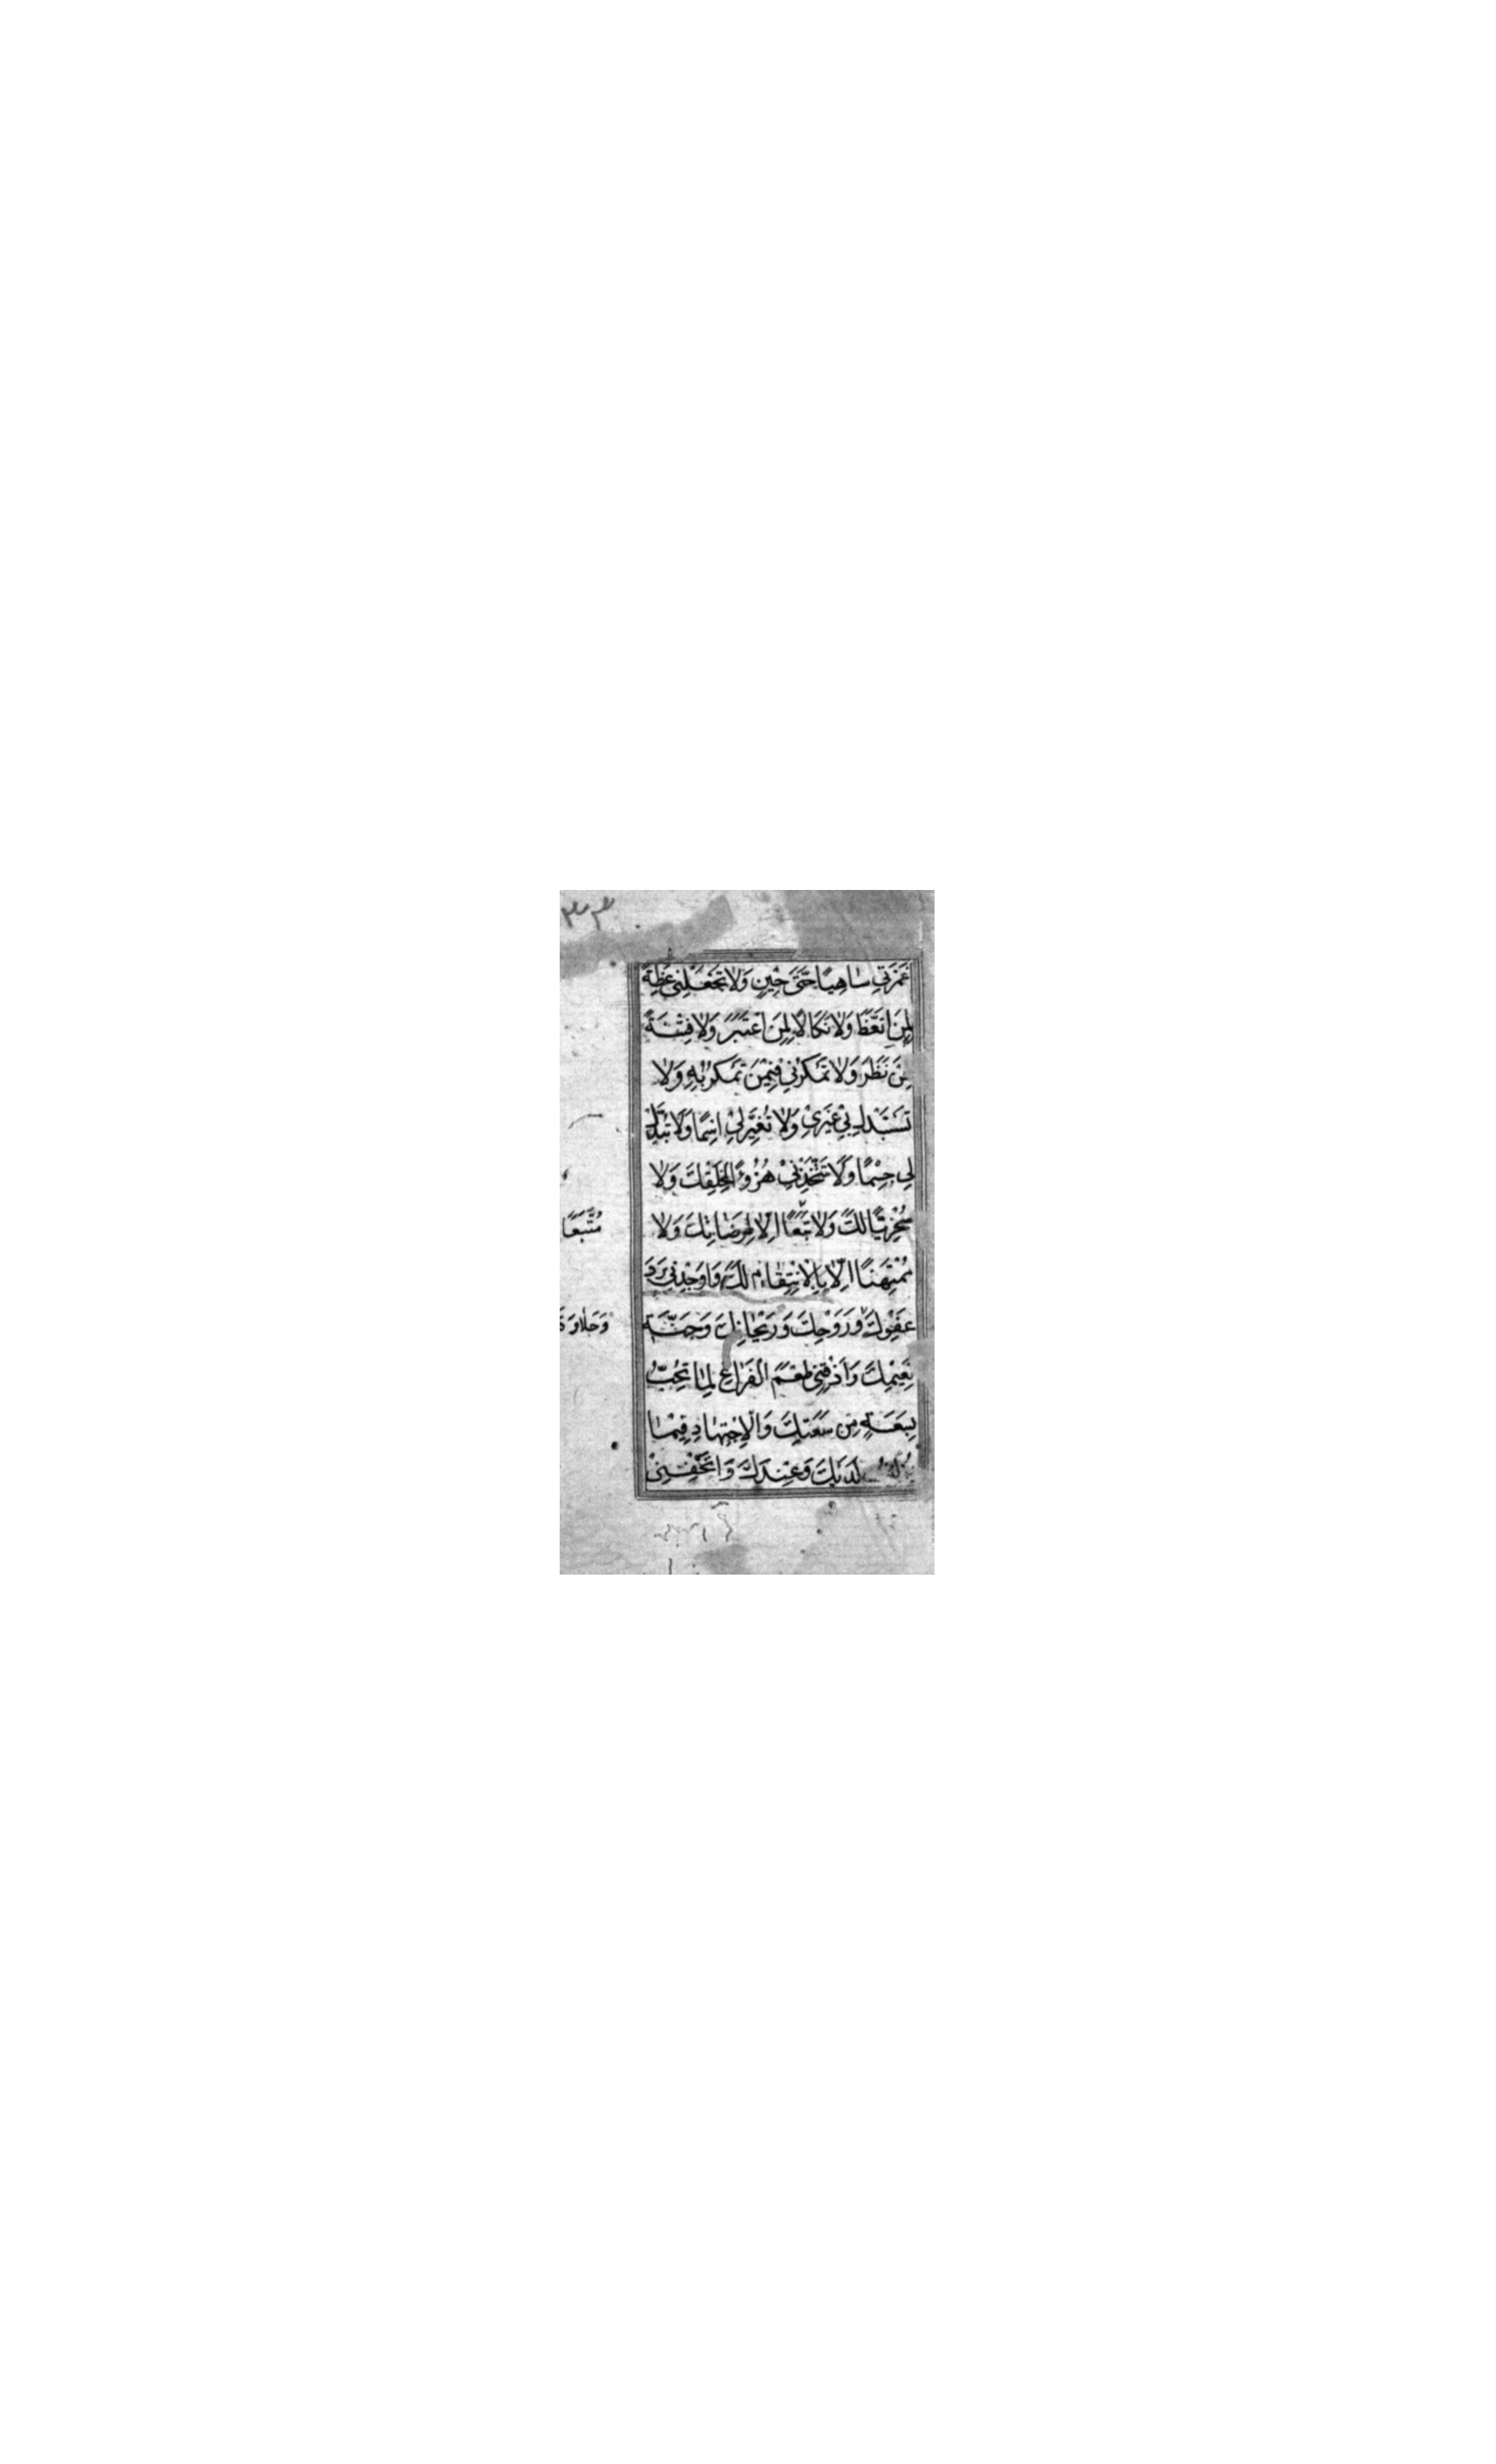 ٣٣
غَمْرَتِي سَاهِيًا حَتَّى حِينٍ وَلَا تَجْعَلْنِي عِظَةً
لِمَنِ اتَّعَظَ وَلَا نَكَالًا لِمَنِ اعْتَبَرَ وَلَا فِتْنَةً
لِمَنْ نَظَرَ وَلَا تَمْكُرْ بِي فِيمَنْ تَمْكُرُ بِهِ وَلَا
تَسْتَبْدِلْ بِي غَيْرِي وَلَا تُغَيِّرْ لِي اسْمًا وَلَا تُبَدِّلْ
لِي جِسْمًا وَلَا تَتَّخِذْنِي هُزُوًا لِخَلْقِكَ وَلَا
سُخْرِيًّا لَكَ وَلَا تَبَعًا إِلَّا لِمَرْضَاتِكَ وَلَا
مُتَّبَعًا
مُمْتَهَنًا إِلَّا بِالْإِنْتِقَامِ لَكَ وَأَوْجِدْنِي بَرْدَ
عَفْوِكَ وَرَوْحِكَ وَرَيْحَانِكَ وَجَنَّةِ
وَحَلَاوَةَ
نَعِيمِكَ وَأَذِقْنِي طَعْمَ الْفَرَاغِ لِمَا تُحِبُّ
بِسَعَةٍ مِنْ سَعَتِكَ وَالْإِجْتِهَادِ فِيمَا
لَدَيْكَ وَعِنْدَكَ وَأَتْحِفْنِي